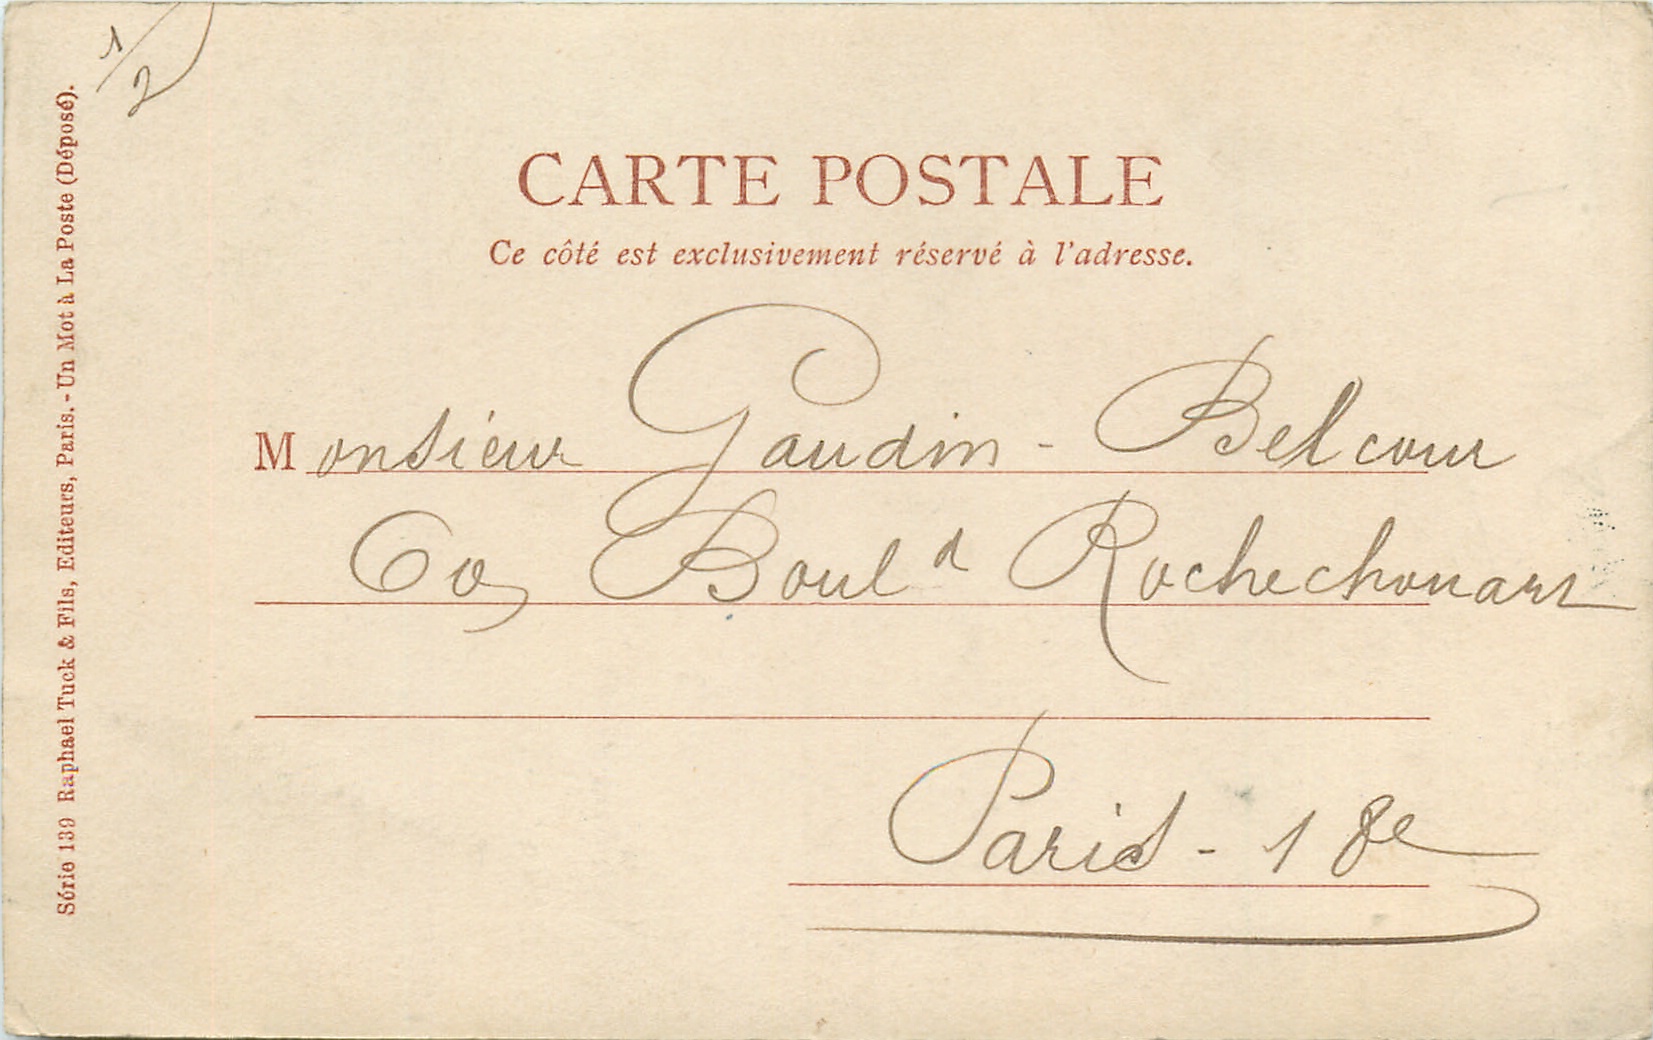 1/2
CARTE POSTALE
Ce côté est exclusivement réservé à l'adresse.
Monsieur Gaudin - Belcour
60, Boul d Rochechouart
Paris - 18e
Série 139 Raphael Tuck & Fils, Editeurs, Paris. - Un Mot à La Poste (Déposé).